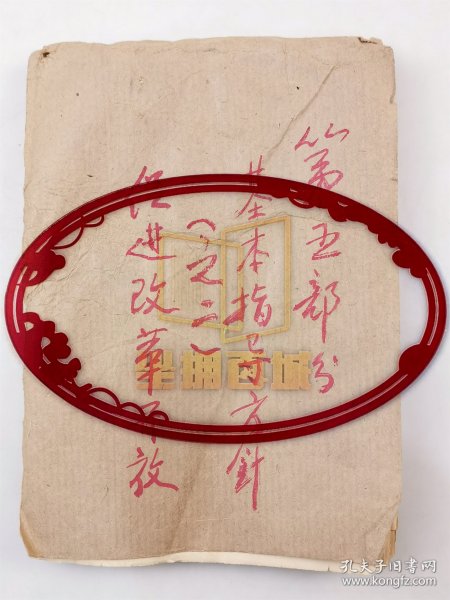 第五部分
基本指导方针
(之二)
促进改革开放
坐拥百城
孔夫子旧书网
www.kongfz.com